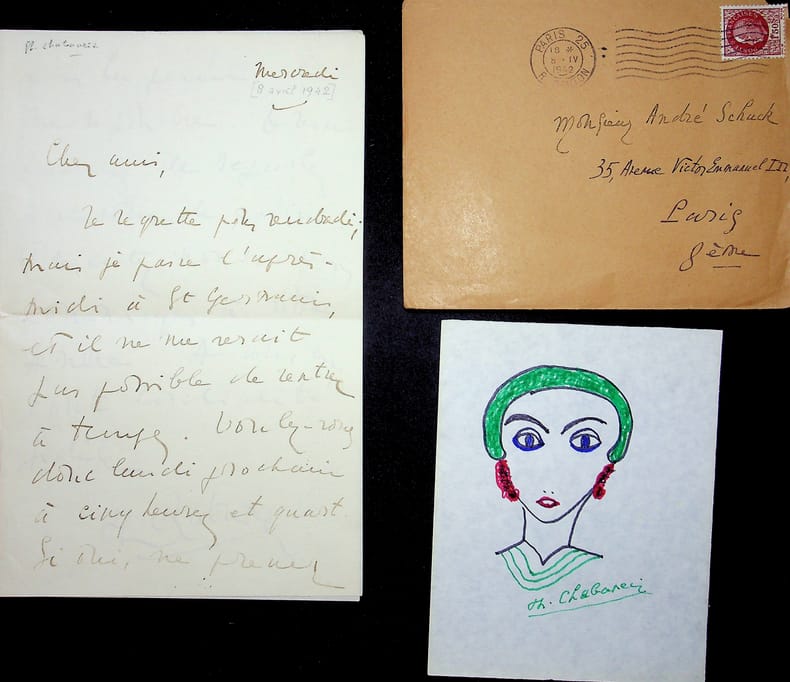 Ph. Chabaneix
Mercredi
[8 avril 1942]
Cher ami,
Je regrette pour vendredi,
mais je passe l'après-
midi à St Germain,
et il ne me serait
pas possible de rentrer
à temps. Voulez-vous
donc lundi prochain
à cinq heures et quart.
Si oui, ne prenez
PARIS 25
18 *
8 · IV
1942
Monsieur André Schuck
35, Avenue Victor Emmanuel III,
Paris
8ème
Ph. Chabaneix